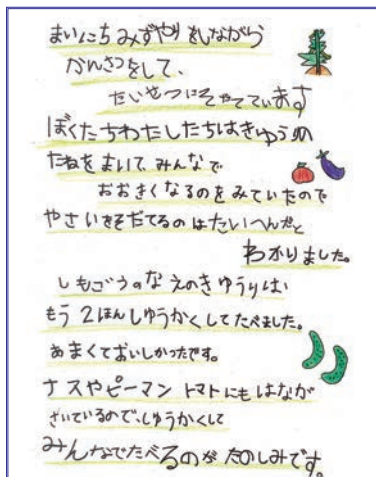 まいにちみずやりをしながら
かんさつをして、
たいせつにそだてています
ぼくたちわたしたちはきゅうりの
たねをまいて、みんなで
おおきくなるのをみていたので
やさいをそだてるのはたいへんだと
わかりました。
しもごうのなえのきゅうりは
もう2ほんしゅうかくしてたべました。
あまくておいしかったです。
ナスやピーマン トマトにもはなが
さいているので、しゅうかくして
みんなでたべるのがたのしみです。